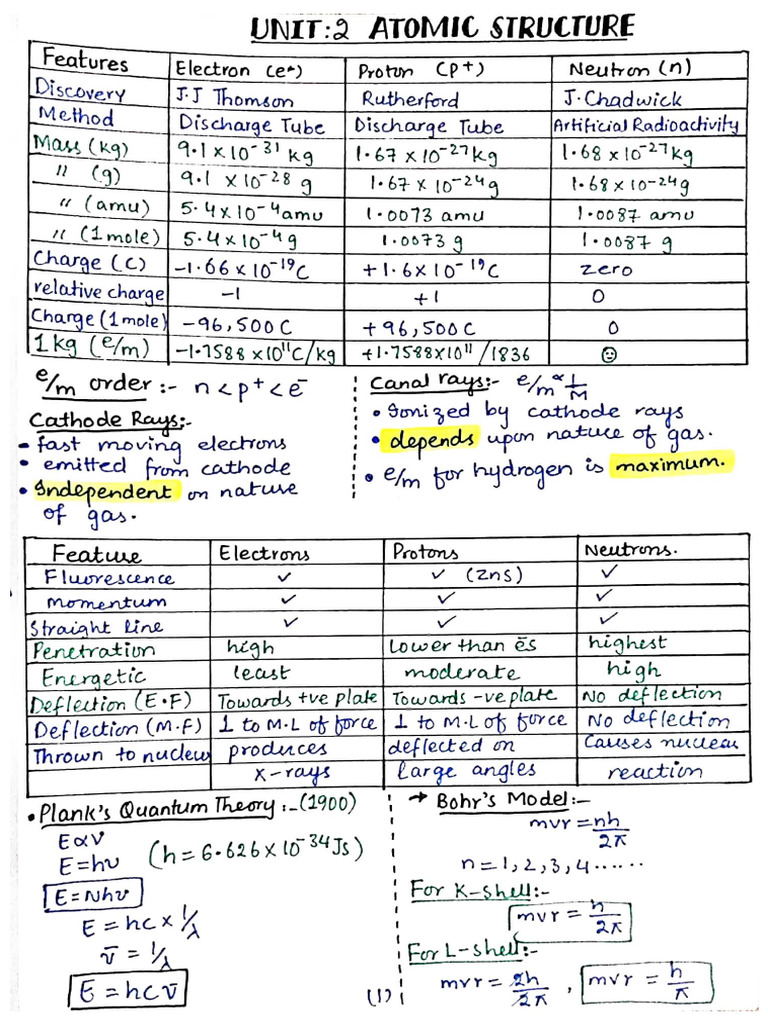 UNIT:2 ATOMIC STRUCTURE
Features Electron (e⁻) Proton (P+) Neutron (n)
Discovery J.J Thomson Rutherford J. Chadwick
Method Discharge Tube Discharge Tube Artificial Radioactivity
Mass (kg) 9.1 x 10⁻³¹ kg 1.67 x 10⁻²⁷ kg 1.68 x 10⁻²⁷ kg
" (g) 9.1 x 10⁻²⁸ g 1.67 x 10⁻²⁴ g 1.68 x 10⁻²⁴ g
" (amu) 5.4 x 10⁻⁴ amu 1.0073 amu 1.0087 amu
" (1 mole) 5.4 x 10⁻⁴ g 1.0073 g 1.0087 g
Charge (C) -1.66 x 10⁻¹⁹ C +1.6 x 10⁻¹⁹ C zero
relative charge -1 +1 0
Charge (1 mole) -96,500 C +96,500 C 0
1 kg (e/m) -1.7588 x 10¹¹ C/kg +1.7588 x 10¹¹/1836 ☺
e/m order :- n < p+ < e⁻
Cathode Rays:-
- fast moving electrons
• emitted from cathode
• Independent on nature
of gas.
Canal rays:- e/m ∝ 1/M
• Ionized by cathode rays
• depends upon nature of gas.
• e/m for hydrogen is maximum.
Feature Electrons Protons Neutrons.
Fluorescence ✓ ✓ (Zns) ✓
momentum ✓ ✓ ✓
Straight Line ✓ ✓ ✓
Penetration high Lower than ēs highest
Energetic least moderate high
Deflection (E.F) Towards +ve plate Towards -ve plate No deflection
Deflection (M.F) ⊥ to M.L of force ⊥ to M.L of force No deflection
Thrown to nucleus produces deflected on Causes nuclear
X-rays large angles reaction
• Plank's Quantum Theory :- (1900)
E ∝ ν
E = hν (h = 6.626 x 10⁻³⁴ Js)
E = Nhν
E = hc x 1/λ
ν̄ = 1/λ
E = hcν̄
→ Bohr's Model:-
mvr = nh/2π
n = 1, 2, 3, 4 ......
For K-shell:-
mvr = h/2π
For L-shell:-
mvr = 2h/2π , mvr = h/π
(1)